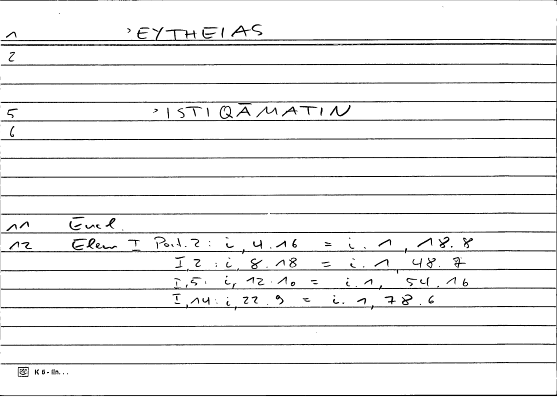 1 ʾEYTHEIAS
2
5 ʾISTIQĀMATIN
6
11 Eucl.
12 Elem I Post. 2 : i, 4.16 = i. 1, 18.8
I, 2 : i, 8.18 = i. 1, 48.7
I, 5 : i, 12.10 = i. 1, 54.16
I, 14 : i, 22.9 = i. 1, 78.6
K 6 - lln. . .